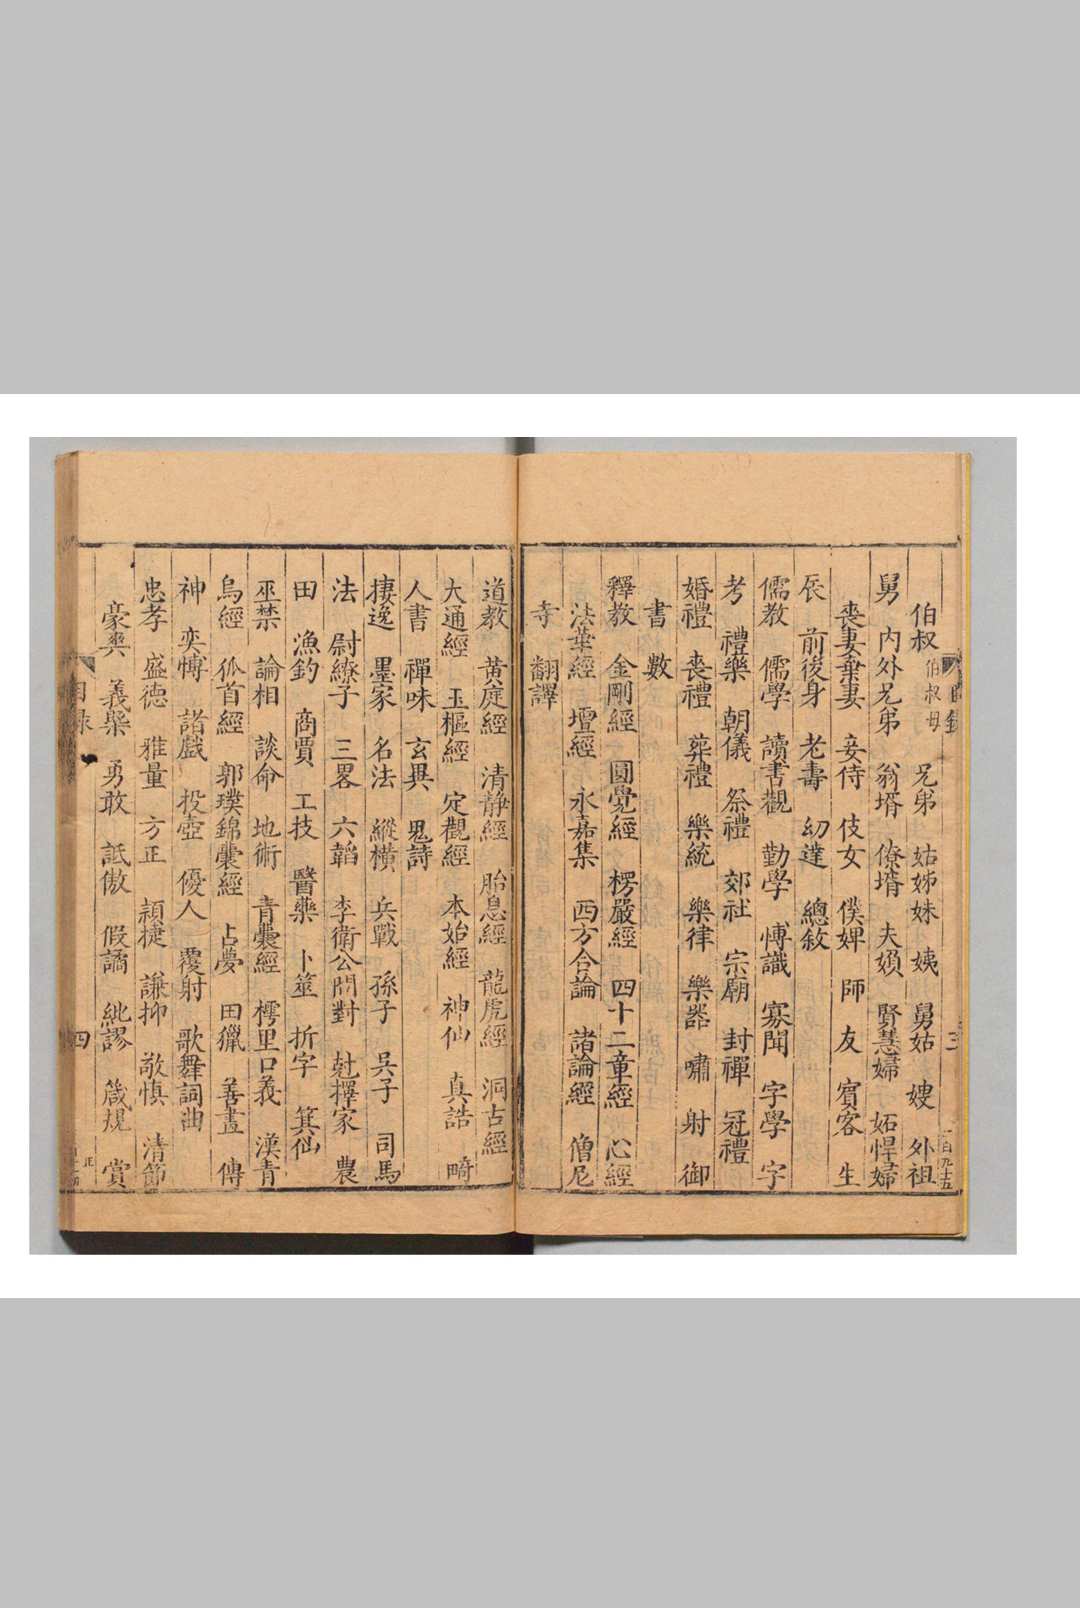 伯叔 伯叔母 兄弟 姑姊妹 姨 舅姑 嫂 外祖
舅 內外兄弟 翁壻 僚壻 夫婦 賢慧婦 妬悍婦
喪妻棄妻 妾侍 伎女 僕婢 師 友 賓客 生
辰 前後身 老壽 幼達 總敘
儒教 儒學 讀書觀 勤學 博識 寡聞 字學 字
考 禮樂 朝儀 祭禮 郊社 宗廟 封禪 冠禮
婚禮 喪禮 葬禮 樂統 樂律 樂器 嘯 射 御
書 數
釋教 金剛經 圓覺經 楞嚴經 四十二章經 心經
法華經 壇經 永嘉集 西方合論 諸論經 僧尼
寺 翻譯
道教 黃庭經 清靜經 胎息經 龍虎經 洞古經
大通經 玉樞經 定觀經 本始經 神仙 真誥 畸
人書 禪味 玄異 鬼詩
棲逸 墨家 名法 縱橫 兵戰 孫子 吳子 司馬
法 尉繚子 三畧 六韜 李衛公問對 尅擇家 農
田 漁釣 商賈 工技 醫藥 卜筮 折字 箕仙
巫禁 論相 談命 地術 青囊經 樗里口義 漢青
烏經 狐首經 郭璞錦囊經 占夢 田獵 善畫 傳
神 奕博 諸戲 投壺 優人 覆射 歌舞詞曲
忠孝 盛德 雅量 方正 穎捷 謙抑 敬慎 清節
豪爽 義槩 勇敢 詆傲 假譎 紕謬 箴規 賞
目録 四